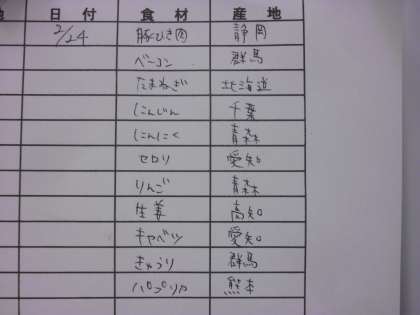 日付 食材 産地
2/24 豚ひき肉 静岡
ベーコン 群馬
たまねぎ 北海道
にんじん 千葉
にんにく 青森
セロリ 愛知
りんご 青森
生姜 高知
キャベツ 愛知
きゅうり 群馬
パプリカ 熊本